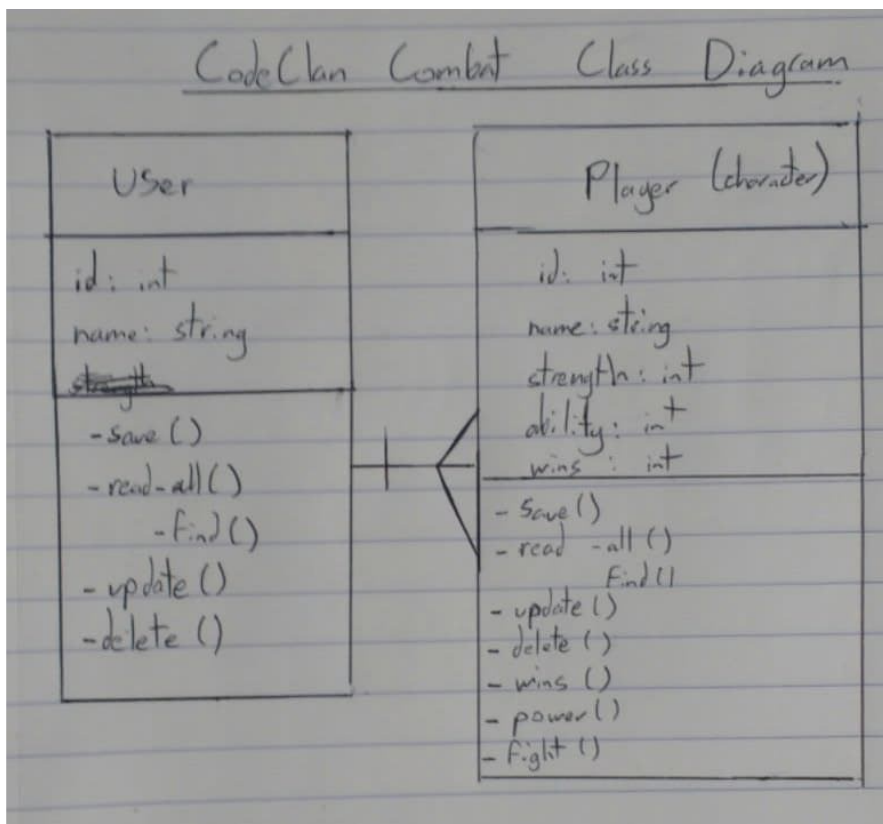 CodeClan Combat Class Diagram
User
id: int
name: string
strength
- save ()
- read-all ()
- find ()
- update ()
- delete ()
Player (character)
id: int
name: string
strength: int
ability: int
wins : int
- save ()
- read -all ()
find ()
- update ()
- delete ()
- wins ()
- power ()
- fight ()